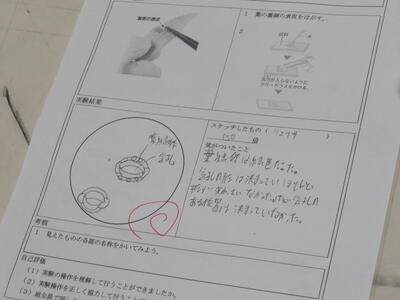 葉の裏側の表皮
1　葉の裏側の表皮をはがす。
2
試料
気泡が入らないように
カバーガラスをかける。
実験結果
スケッチしたもの（ツユクサ　）
150　倍
気がついたこと
葉緑体は緑色だった。
気孔の形は決まっていて
気孔
ある位置は決まっていなかった。
考察
1　見えたものの各部の名称をかいてみよう。
自己評価
（1）実験の操作を理解して行うことができましたか。
（2）実験操作を正しく協力して行うこと